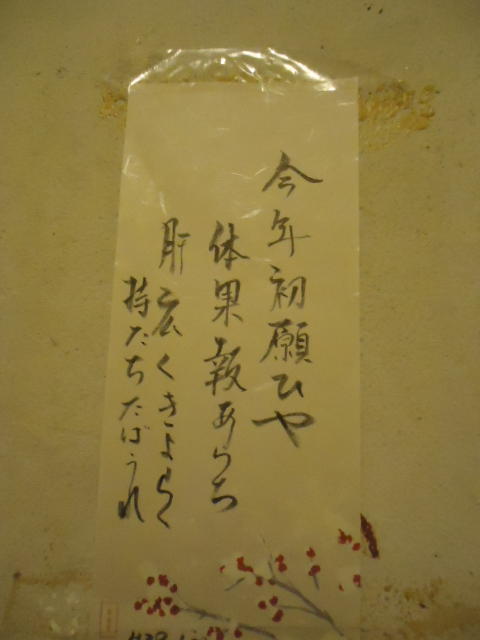 今年初願ひや
体果報あらち
肝広くきよらく
持たちたばうれ